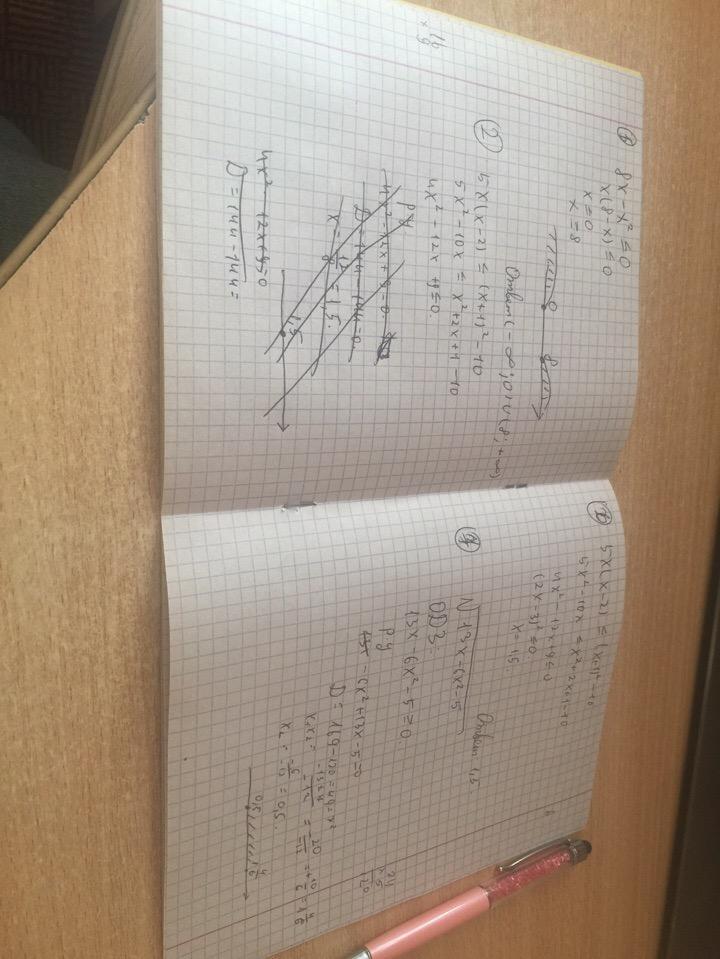 ① 8x - x² ≤ 0
x(8-x) ≤ 0
x = 0
x = 8
0 8
Ответ (-∞; 0] ∪ [8; +∞)
② 5x(x-2) ≤ (x+1)² - 10
5x² - 10x ≤ x² + 2x + 1 - 10
4x² - 12x + 9 ≤ 0.
Р.у
4x² - 12x + 9 = 0.
D = 144 - 144 = 0.
x = 12/8 = 1,5.
1,5
4x² - 12x + 9 = 0
D = 144 - 144 =
16
× 9
5x(x-2) ≤ (x+1)² - 10
5x² - 10x ≤ x² + 2x + 1 - 10
4x² - 12x + 9 ≤ 0
(2x-3)² ≤ 0.
x = 1,5.
Ответ 1,5
√13x - 6x² - 5
ОДЗ:
13x - 6x² - 5 ≥ 0.
Р.у
-6x² + 13x - 5 = 0
D = 169 - 120 = 49 = 7²
24
× 5
120
= 20/12 = 10/6 = 1 4/6
= 0,5.
0,5 1 4/6